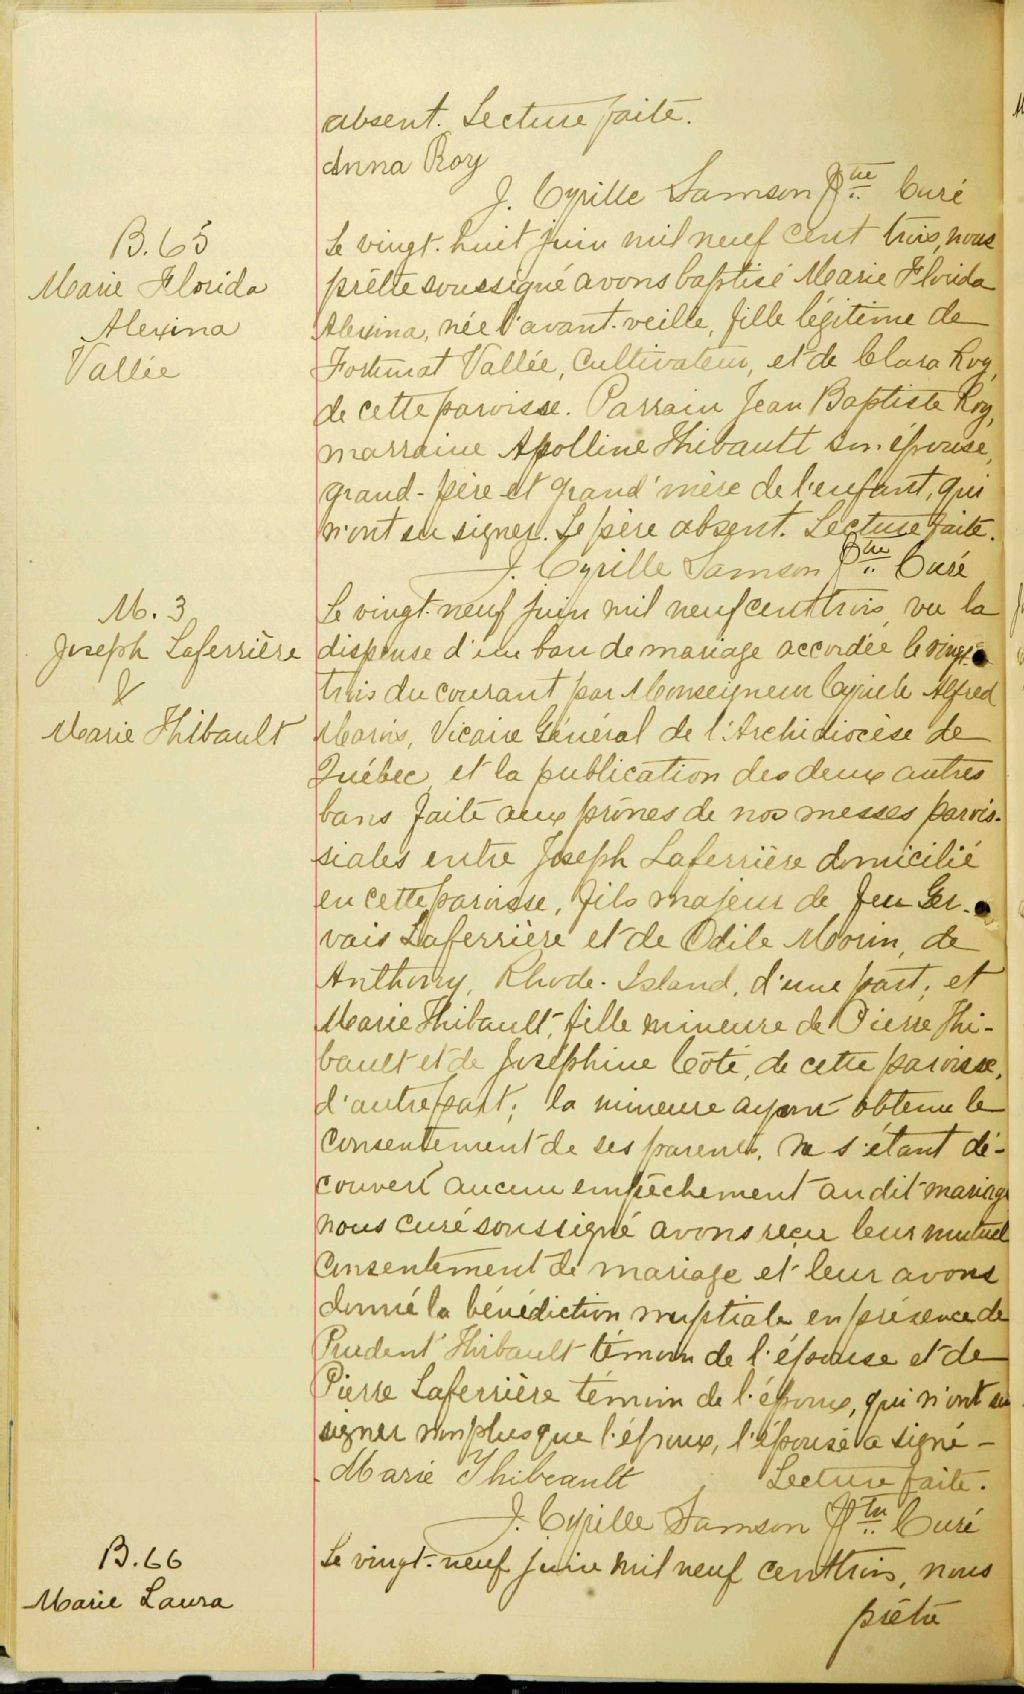 absent. Lecture faite.
Anna Roy
J. Cyrille Samson Ptre Curé
B. 65
Marie Florida
Alexina
Vallée
Le vingt-huit juin mil neuf cent trois, nous
prêtre soussigné avons baptisé Marie Florida
Alexina, née l'avant-veille, fille légitime de
Fortunat Vallée, cultivateur, et de Clara Roy,
de cette paroisse. Parrain Jean Baptiste Roy,
marraine Apolline Thibault son épouse,
grand-père et grand'mère de l'enfant, qui
n'ont su signer. Le père absent. Lecture faite.
J. Cyrille Samson Ptre Curé
M. 3
Joseph Laferrière
&
Marie Thibault
Le vingt-neuf juin mil neuf cent trois, vu la
dispense d'un ban de mariage accordée le vingt-
trois du courant par Monseigneur Cyrille Alfred
Marois, Vicaire Général de l'Archidiocèse de
Québec, et la publication des deux autres
bans faite aux prônes de nos messes parois-
siales entre Joseph Laferrière domicilié
en cette paroisse, fils majeur de feu Ger-
vais Laferrière et de Odile Morin, de
Anthony, Rhode-Island, d'une part; et
Marie Thibault, fille mineure de Pierre Thi-
bault et de Joséphine Côté, de cette paroisse,
d'autre part; la mineure ayant obtenu le
consentement de ses parents, ne s'étant dé-
couvert aucun empêchement au dit mariage
nous curé soussigné avons reçu leur mutuel
consentement de mariage et leur avons
donné la bénédiction nuptiale en présence de
Prudent Thibault témoin de l'épouse et de
Pierre Laferrière témoin de l'époux, qui n'ont su
signer non plus que l'époux, l'épouse a signé -
Marie Thibeault Lecture faite.
J. Cyrille Samson Ptre Curé
B. 66
Marie Laura
Le vingt-neuf juin mil neuf cent trois, nous
prêtre